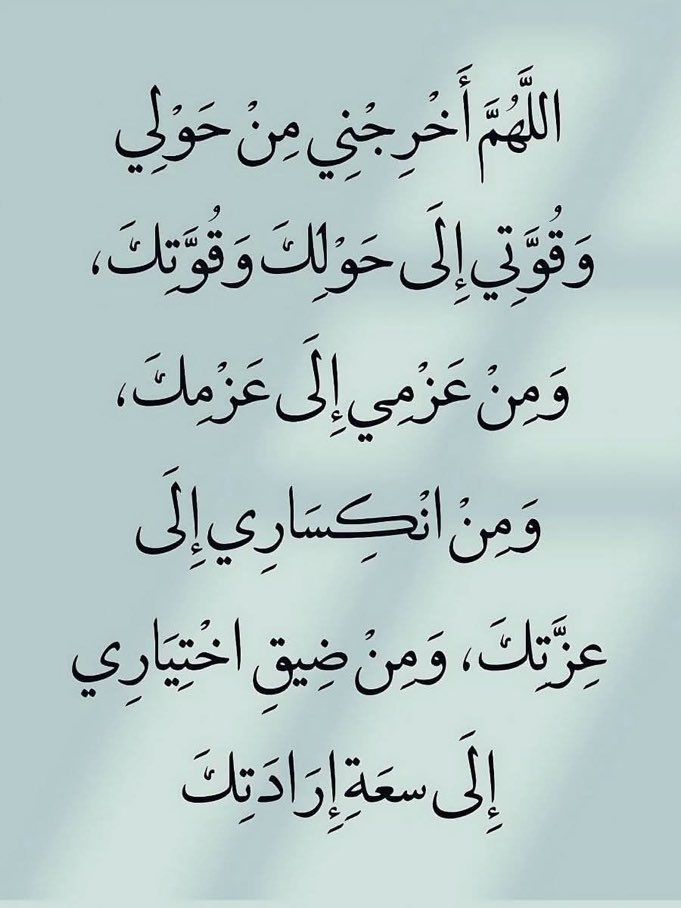 اللَّهُمَّ أَخْرِجْنِي مِنْ حَوْلِي
وَقُوَّتِي إِلَى حَوْلِكَ وَقُوَّتِكَ،
وَمِنْ عَزْمِي إِلَى عَزْمِكَ،
وَمِنْ انْكِسَارِي إِلَى
عِزَّتِكَ، وَمِنْ ضِيقِ اخْتِيَارِي
إِلَى سعَةِ إِرَادَتِكَ